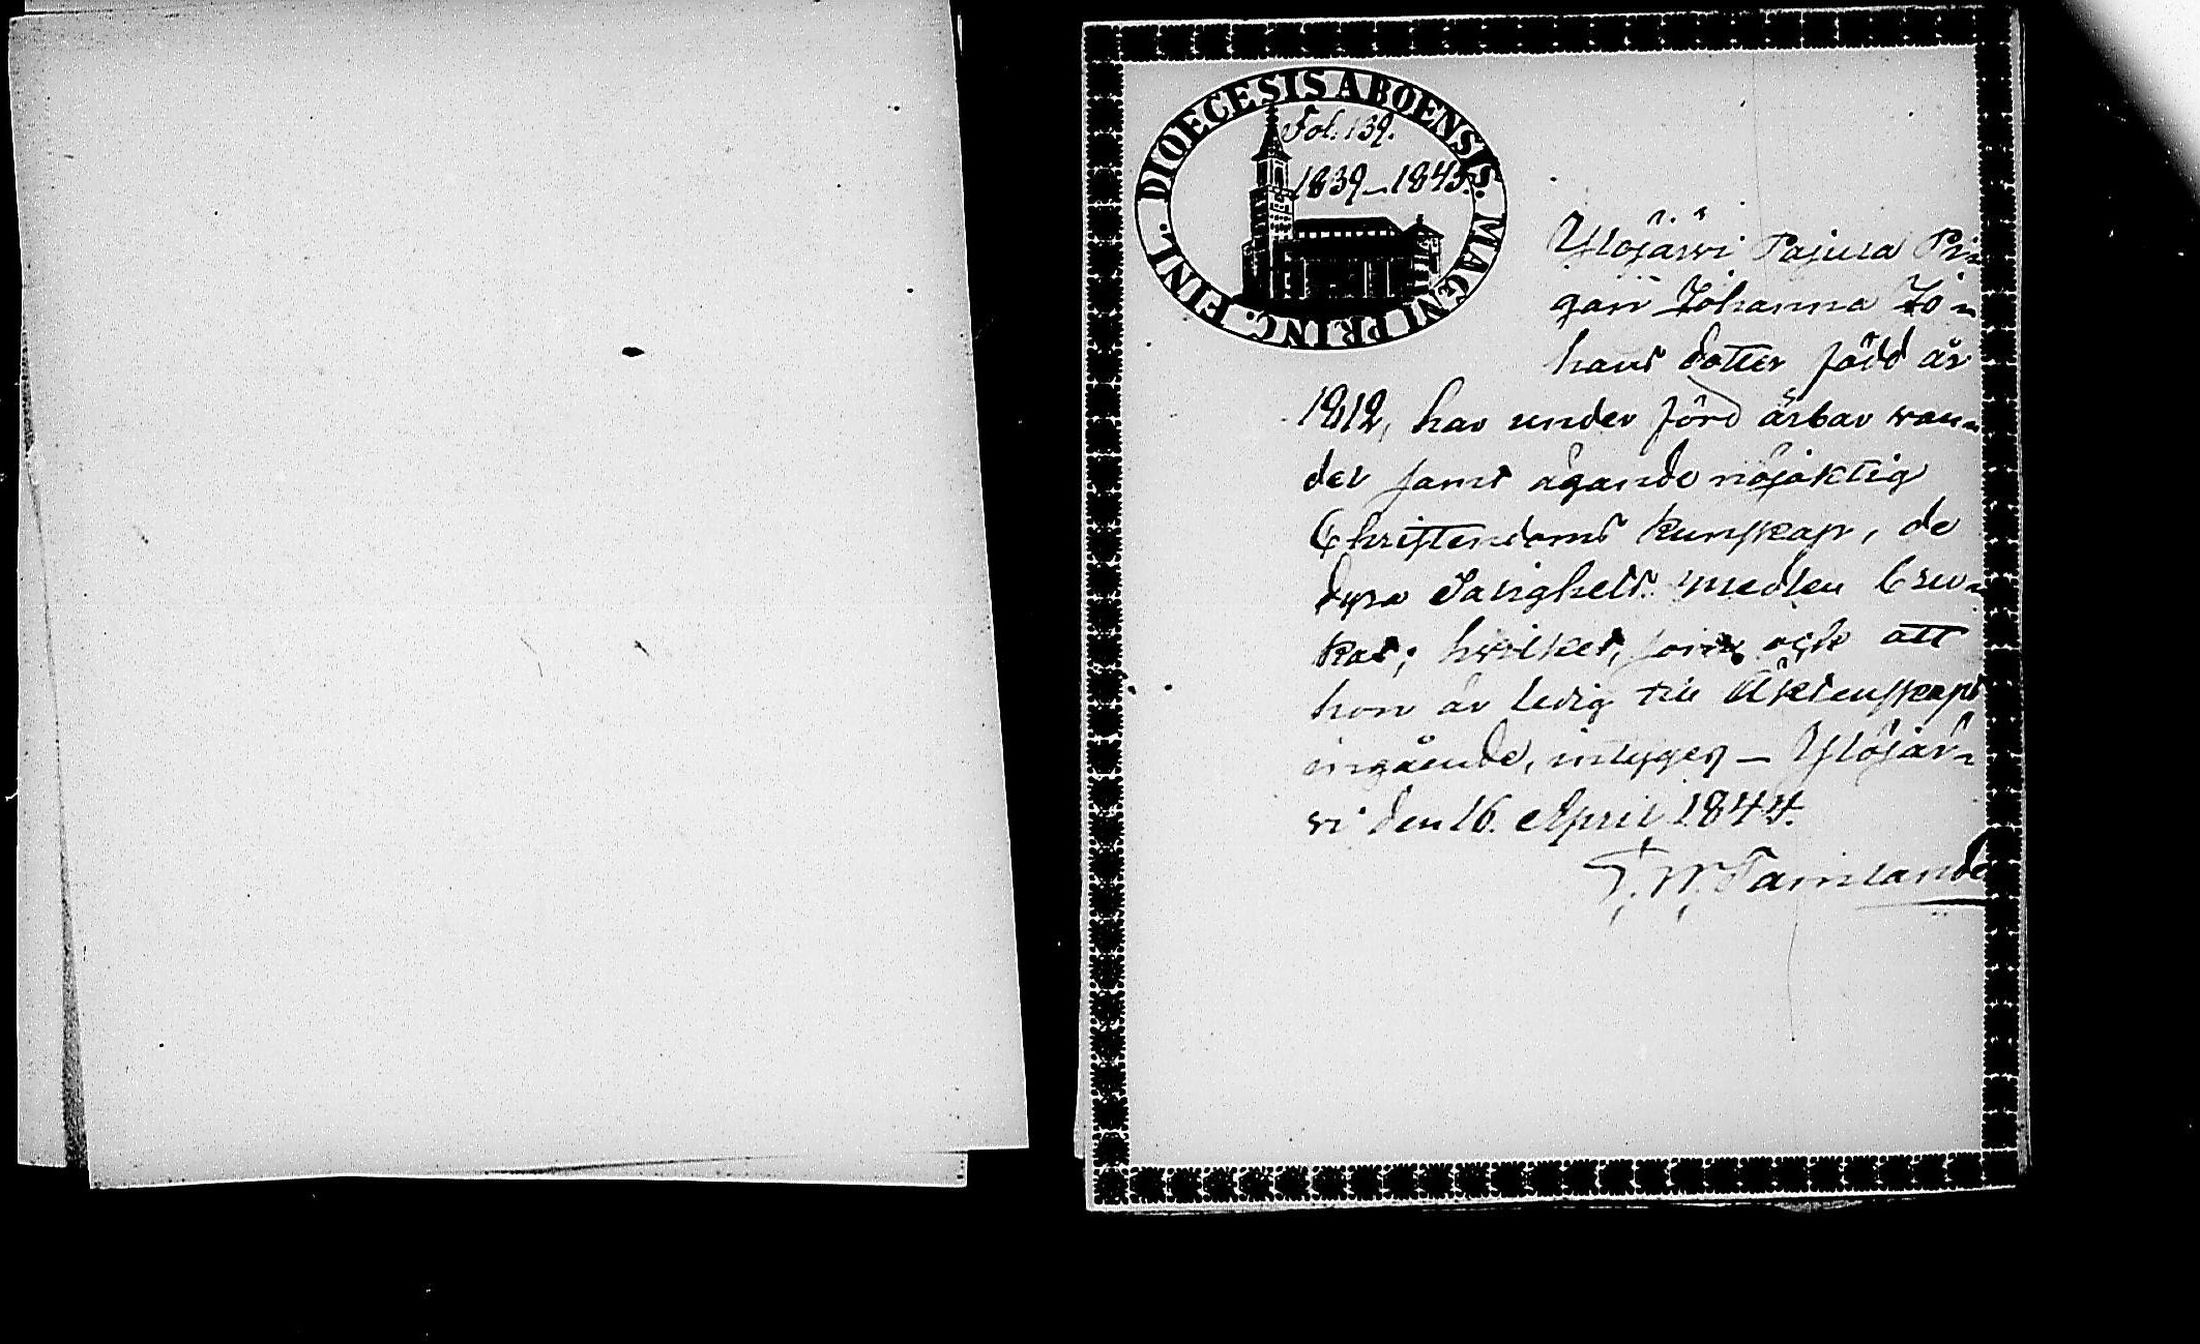 DIOECESIS ABOENSIS. MAGNI PRINC. FINL.
Fol. 139.
1839-1845.
Ylöjärwi Pajula Pi-
gan Johanna Jo-
hans dotter född år
1812, har under förd ärbar wan-
del samt ägande nöjaktig
Christendoms kunskap, de
dyra Salighets medlen bru-
kat; hwilket, som ock att
hon är ledig till Äktenskaps
ingående, intygas - Ylöjär-
vi den 16. April 1844.